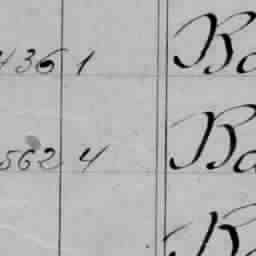 436 1 Ba
562 4 Ba
B